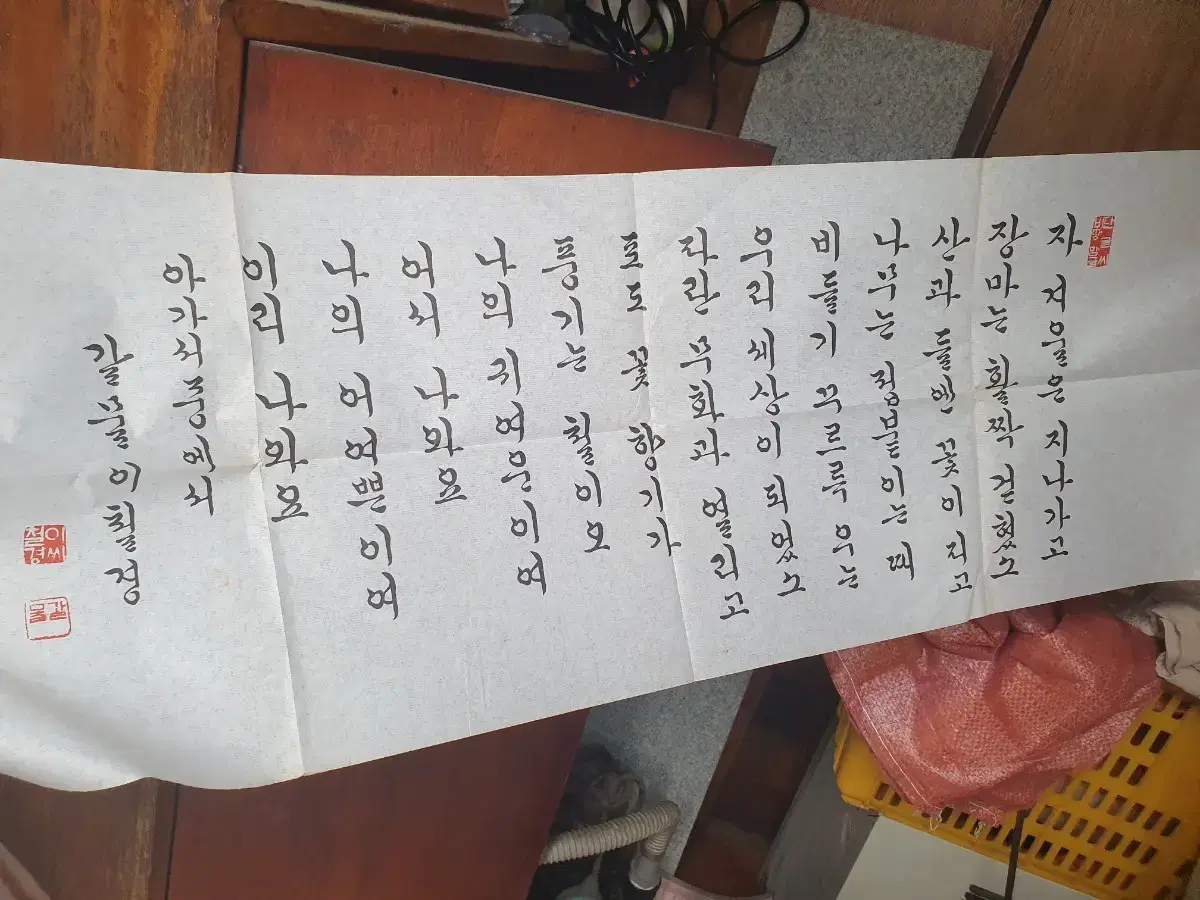 자 겨울은 지나가고
장마는 활짝 걷혔소
산과 들엔 꽃이 피고
나무는 접붙이는 때
비둘기 꾸르륵 우는
우리 세상이 되었소
파란 무화과 열리고
포도 꽃 향기가
풍기는 철이오
나의 귀여운 이여
어서 나와요
나의 어여쁜 이여
이리 나와요
아가서 중에서
갈물 이철경
이씨철경
갈물